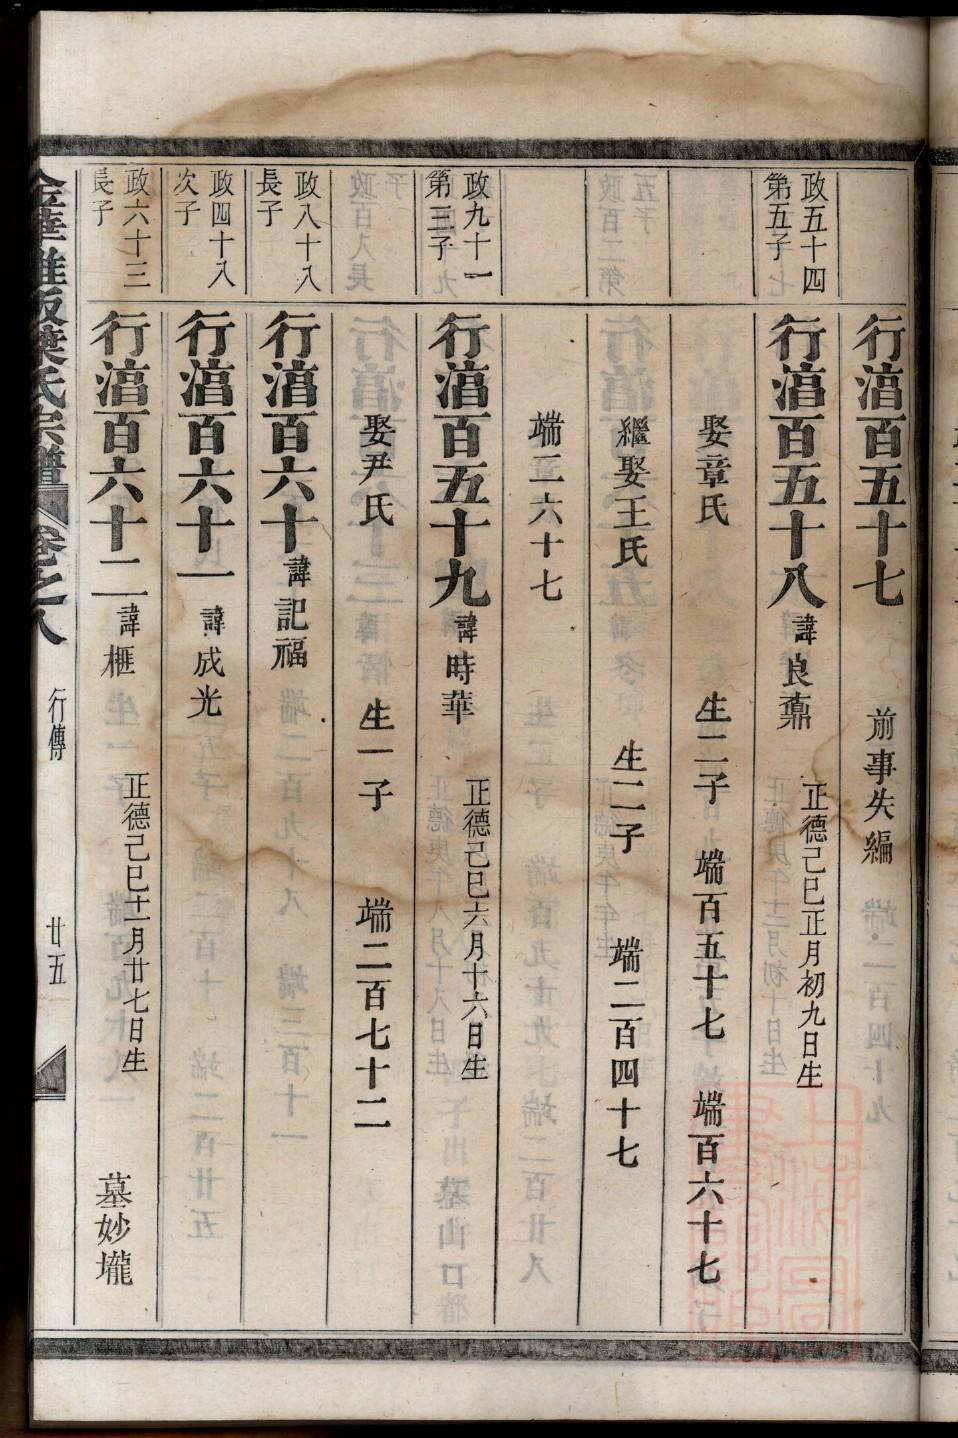 行湇百五十七 前事失編
政五十四
第五子
行湇百五十八 諱良鼐 正德己巳正月初九日生
娶章氏 生二子 端百五十七 端百六十七
繼娶王氏 生二子 端二百四十七
端三六十七
政九十一
第三子
行湇百五十九 諱時華 正德己巳六月十六日生
娶尹氏 生一子 端二百七十二
政八十八
長子
行湇百六十 諱記福
政四十八
次子
行湇百六十一 諱成光
政六十三
長子
行湇百六十二 諱榧 正德己巳十一月廿七日生 墓妙壠
葉氏宗譜 卷之八 行傳 廿五